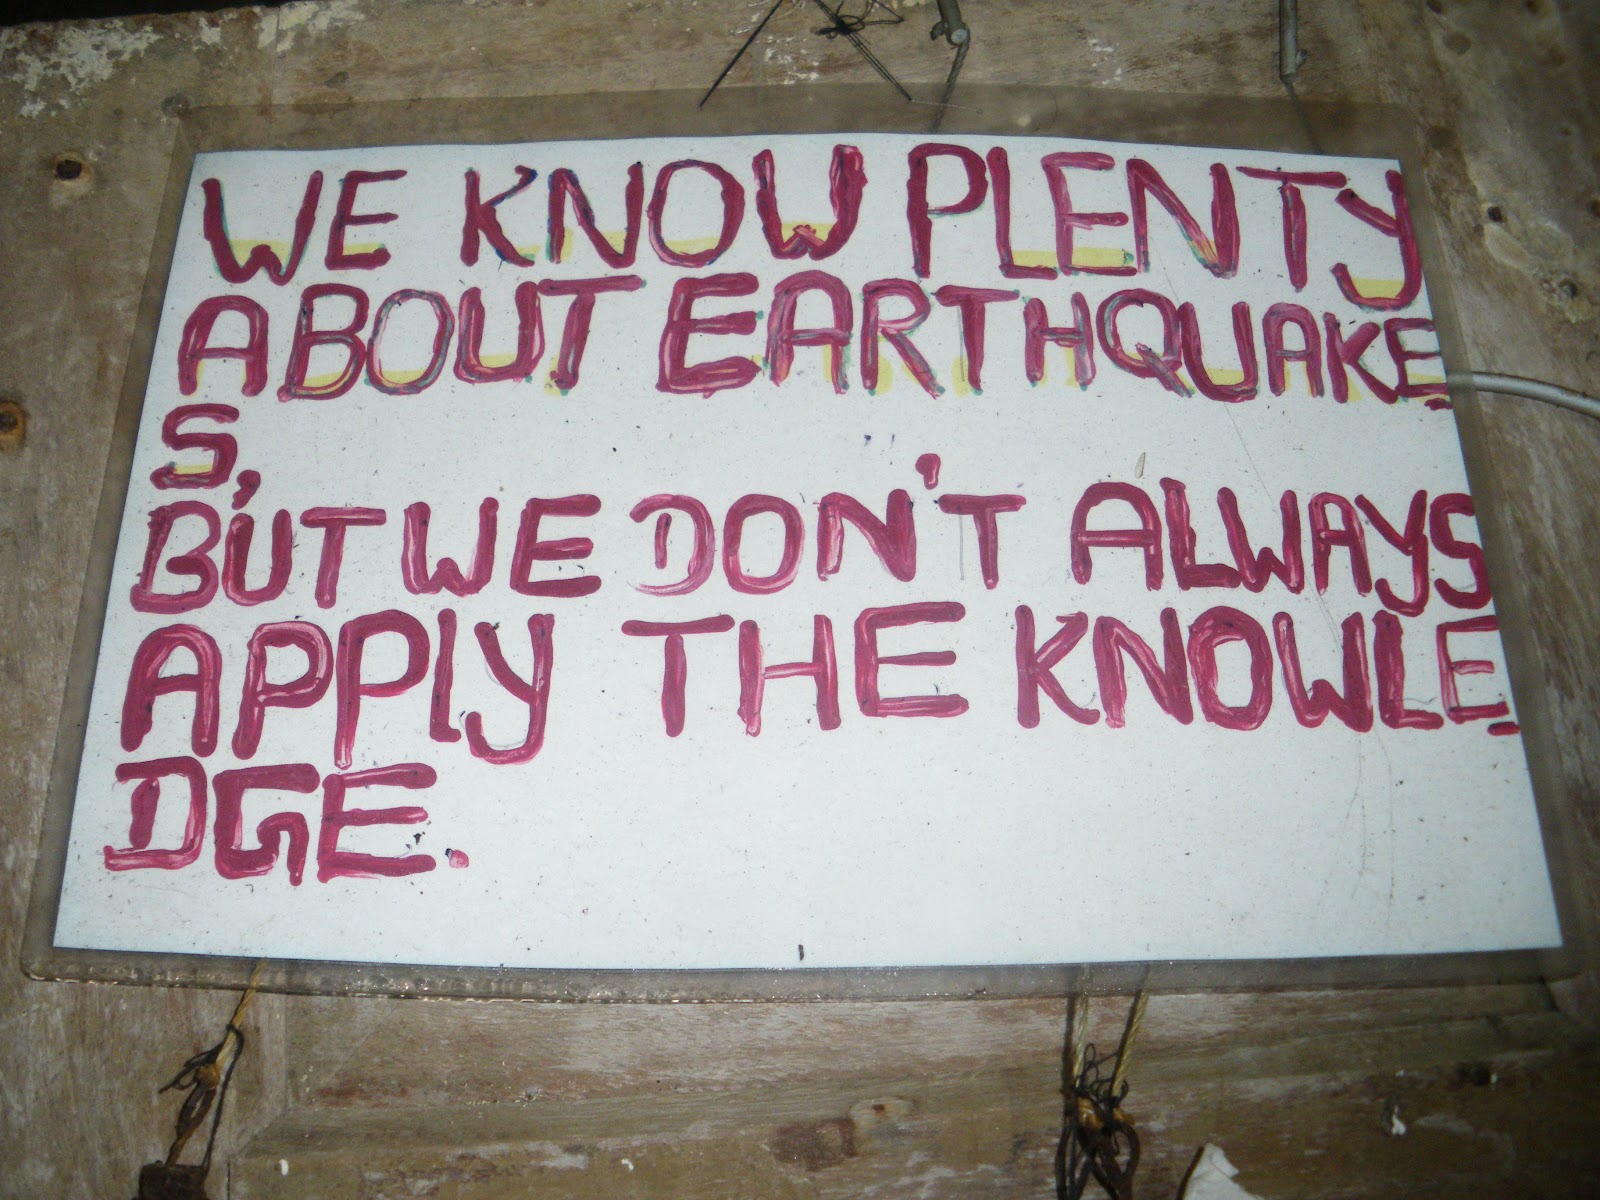 WE KNOW PLENTY
ABOUT EARTHQUAKE-
S,
BUT WE DON'T ALWAYS
APPLY THE KNOWLE-
DGE.